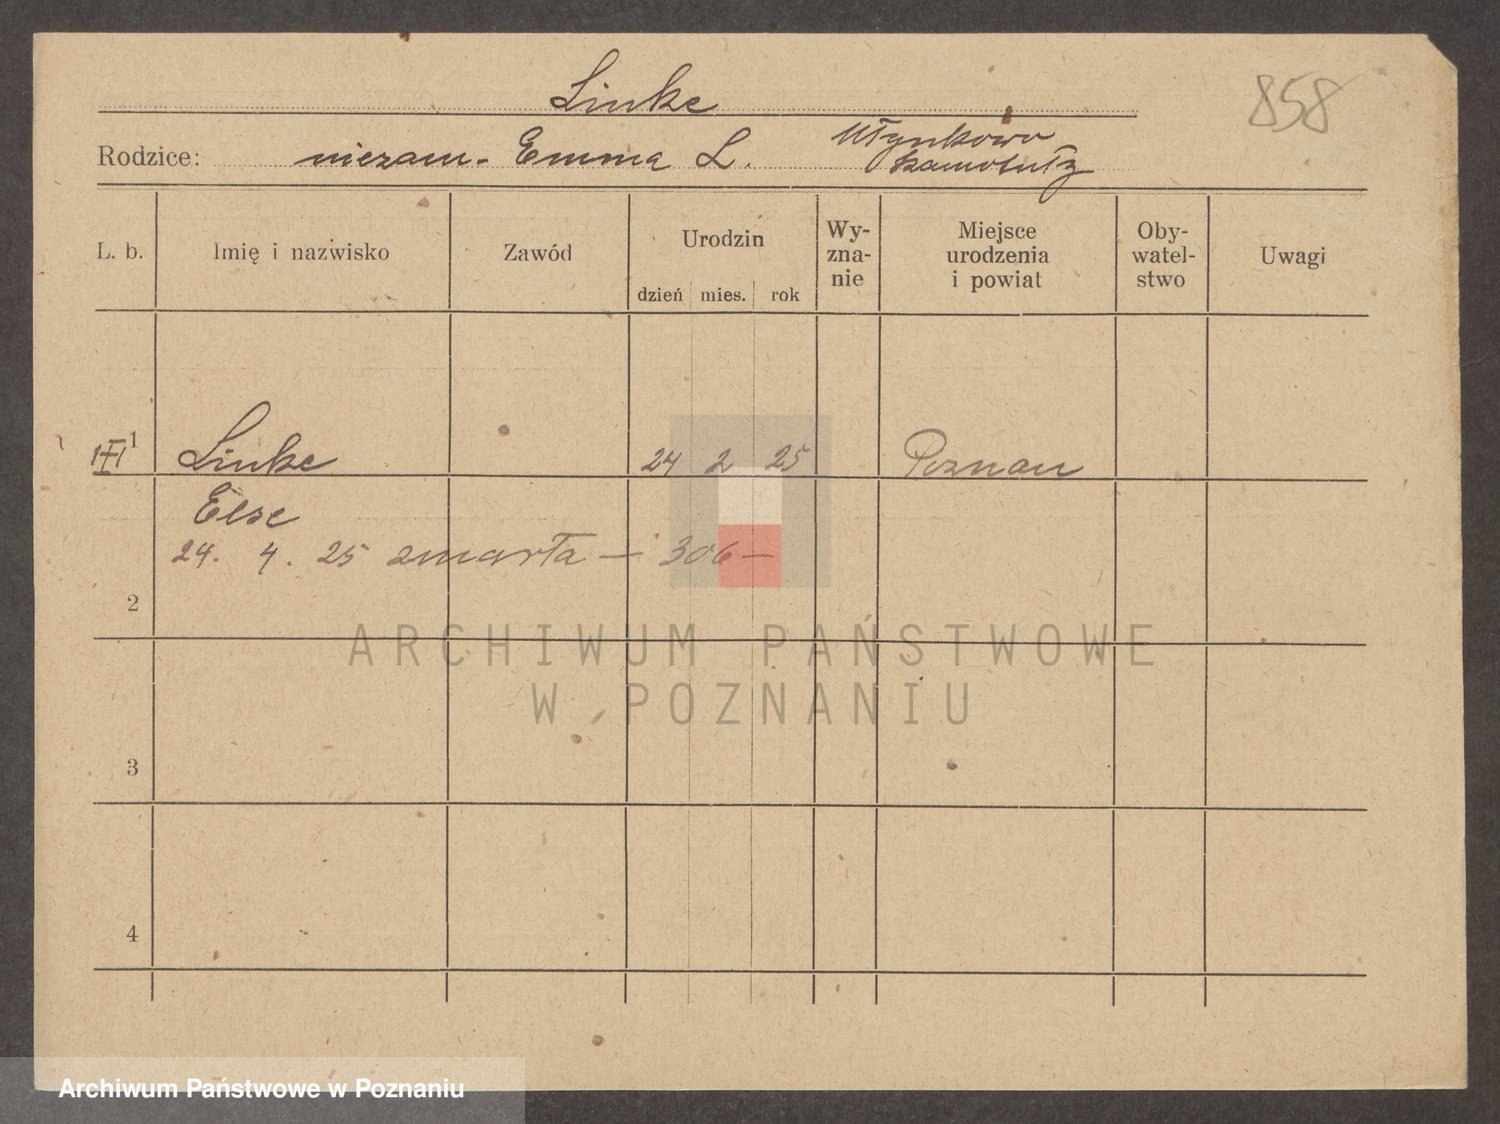 Linke
858
Rodzice: niezam. Emma L. Młynkowo
L. b. Imię i nazwisko Zawód Urodzin Wy-
zna-
nie Miejsce
urodzenia
i powiat Oby-
watel-
stwo Uwagi
dzień mies. rok
1 Linke 24 2 25 Poznan
Else
24. 4. 25 zmarła — 306 —
2
ARCHIWUM PAŃSTWOWE
W POZNANIU
3
4
Archiwum Państwowe w Poznaniu